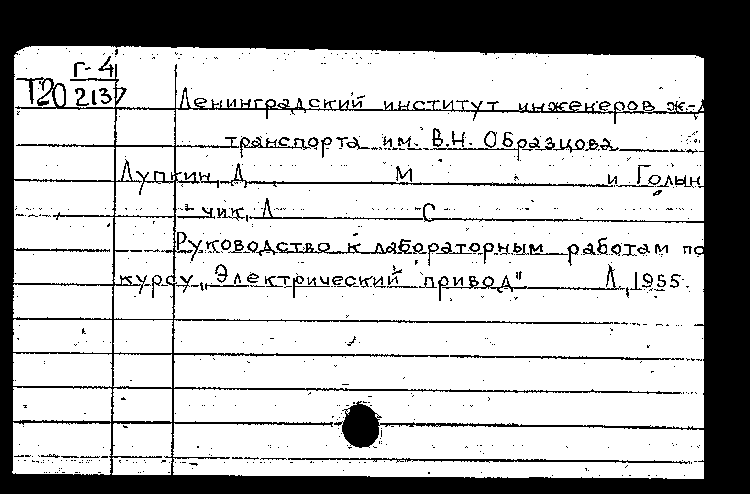 Г-4
Т20 2137
Ленинградский институт инженеров ж-д
транспорта им. В.Н. Образцова
Лупкин, Д М и Голын
-чик, Л С
Руководство к лабораторным работам по
курсу „Электрический привод" Л, 1955.